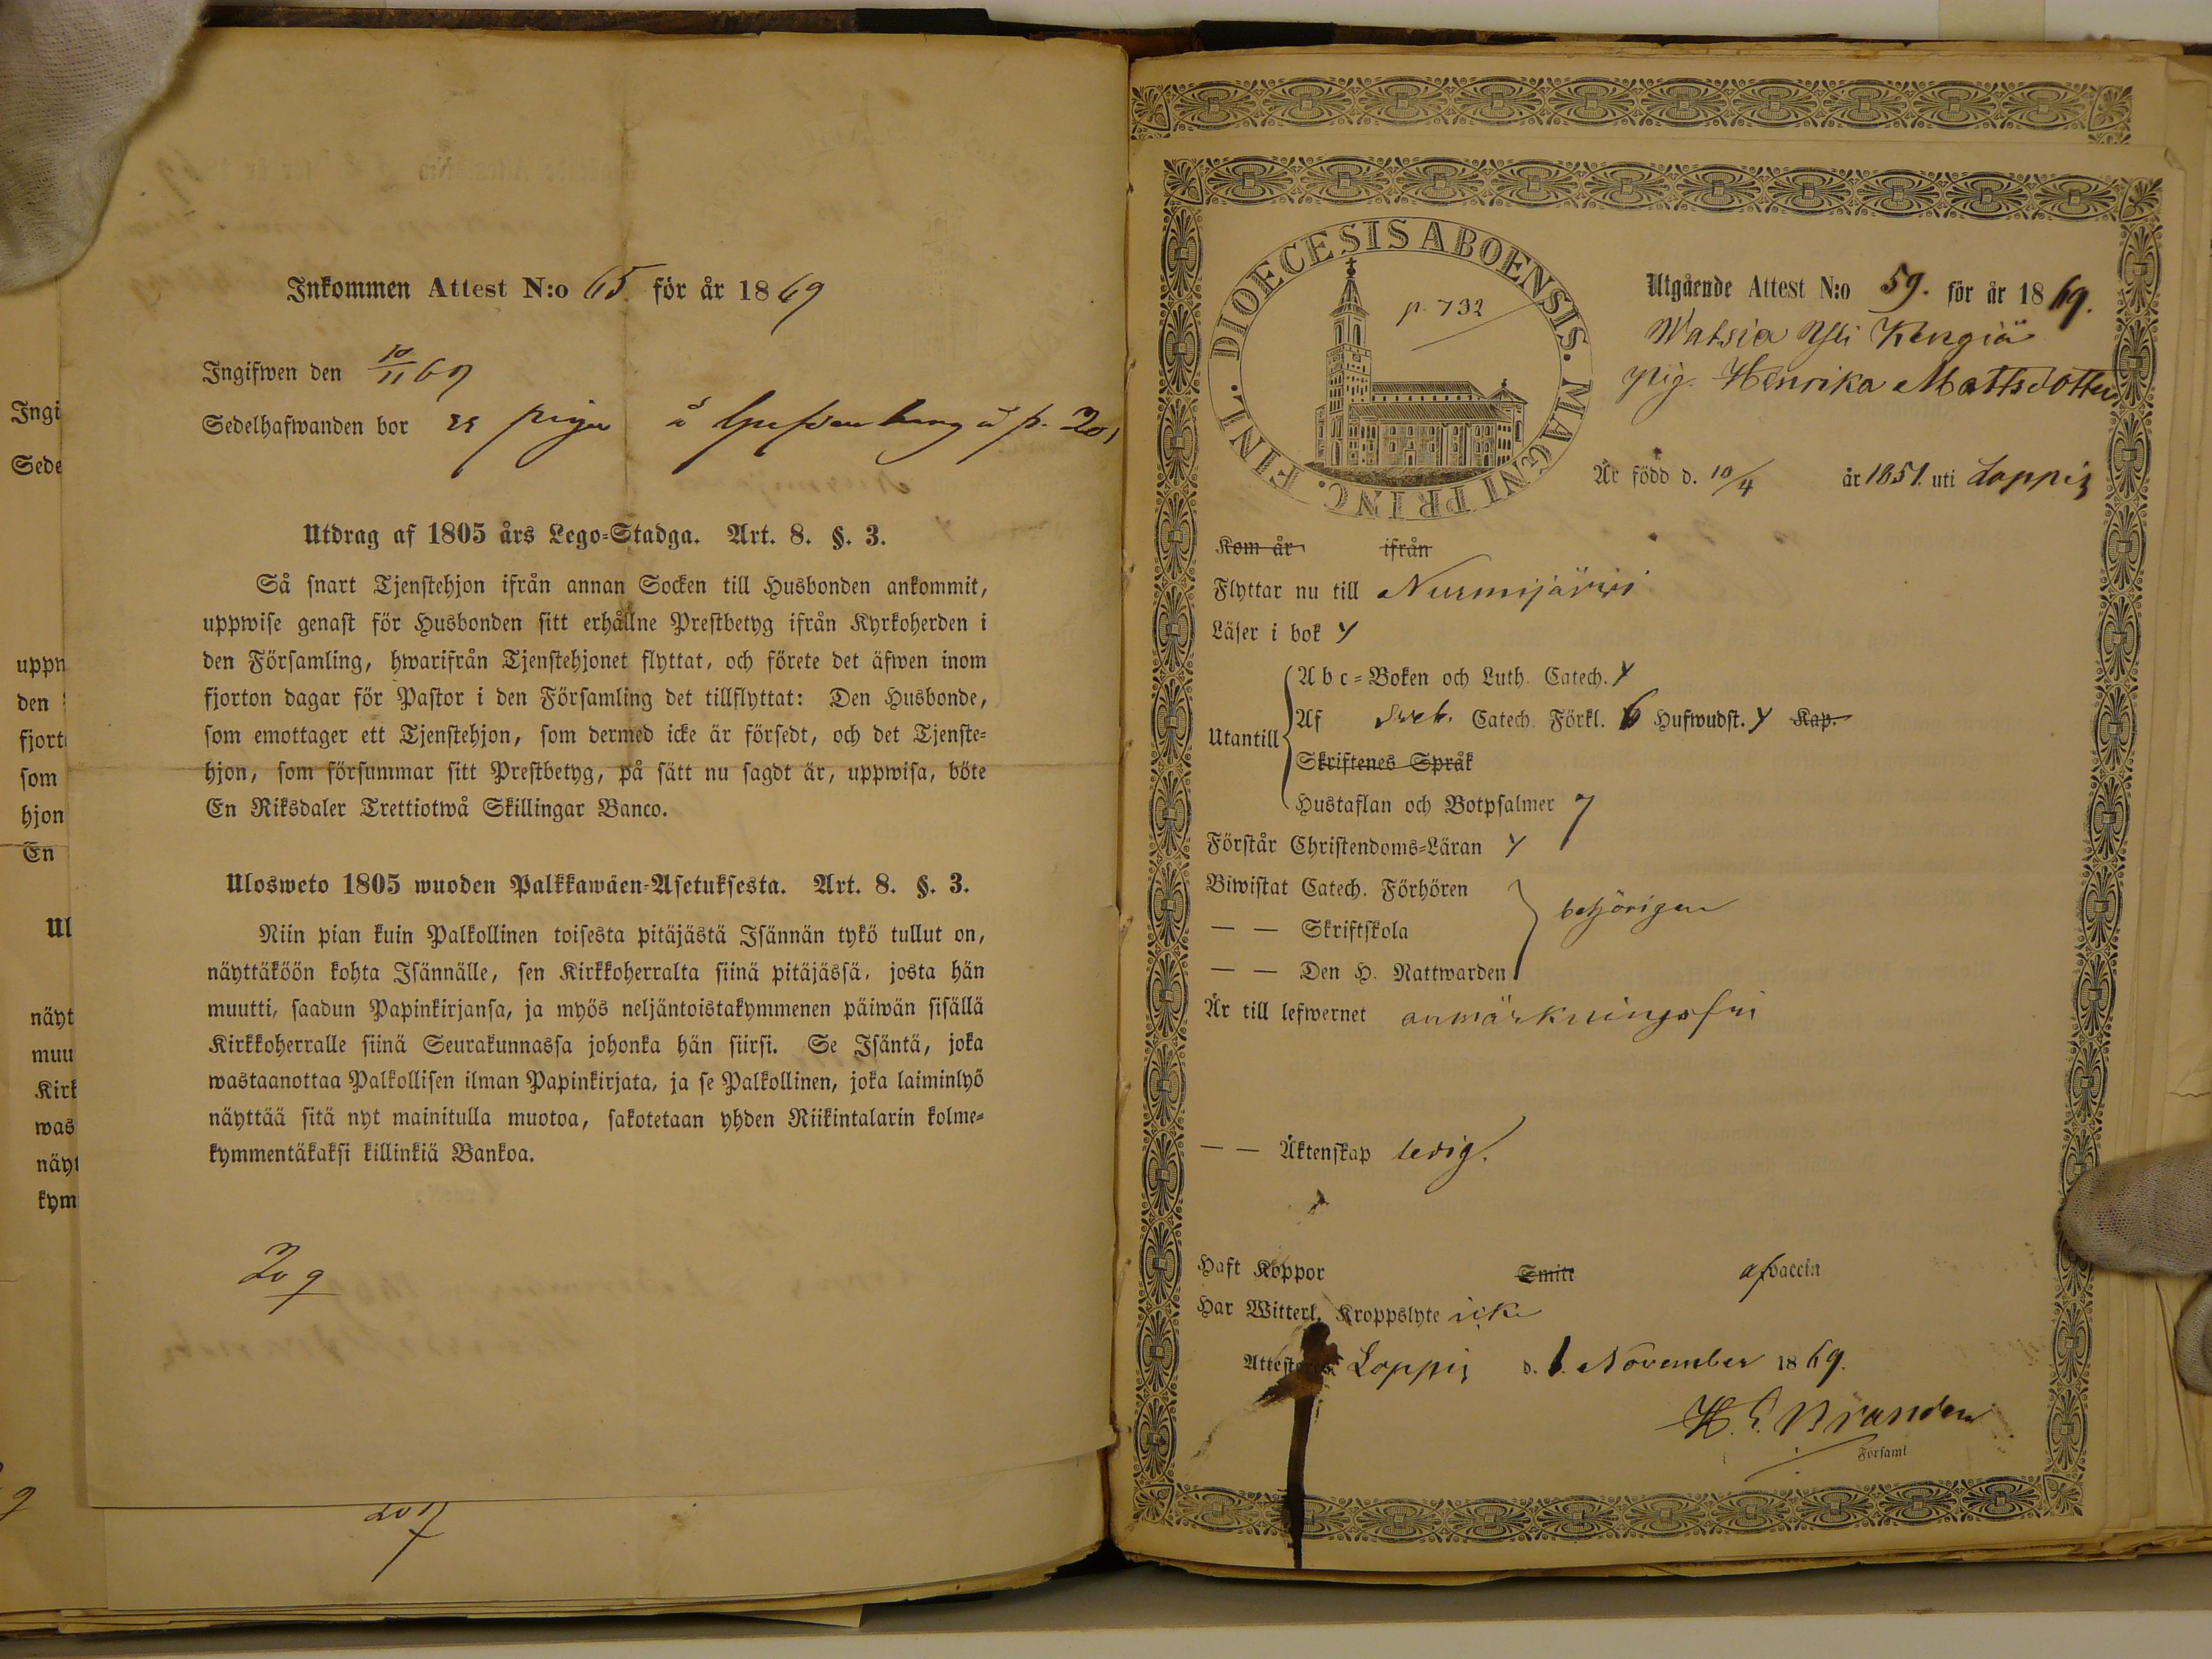 Inkommen Attest N:o 65. för år 1869
Ingifwen den 10/11 69
Sedelhafwanden bor ss piga å p. 201
Utdrag af 1805 års Lego-Stadga. Art. 8. §. 3.
Så snart Tjenstehjon ifrån annan Socken till Husbonden ankommit,
uppwise genast för Husbonden sitt erhållne Prestbetyg ifrån Kyrkoherden i
den Församling, hwarifrån Tjenstehjonet flyttat, och förete det äfwen inom
fjorton dagar för Pastor i den Församling det tillflyttat: Den Husbonde,
som emottager ett Tjenstehjon, som dermed icke är försedt, och det Tjenste-
hjon, som försummar sitt Prestbetyg, på sätt nu sagdt är, uppwisa, böte
En Riksdaler Trettiotwå Skillingar Banco.
Ulosweto 1805 wuoden Palkkawäen-Asetuksesta. Art. 8. §. 3.
Niin pian kuin Palkollinen toisesta pitäjästä Isännän tykö tullut on,
näyttäköön kohta Isännälle, sen Kirkkoherralta siinä pitäjässä, josta hän
muutti, saadun Papinkirjansa, ja myös neljäntoistakymmenen päiwän sisällä
Kirkkoherralle siinä Seurakunnassa johonka hän siirsi. Se Isäntä, joka
wastaanottaa Palkollisen ilman Papinkirjata, ja se Palkollinen, joka laiminlyö
näyttää sitä nyt mainitulla muotoa, sakotetaan yhden Riikintalarin kolme-
kymmentäkaksi killinkiä Bankoa.
209
Ingi
Sede
uppn
den
fjort
som
hjon
En
Ul
näyt
muu
Kirk
was
näyt
kym
DIOECESIS ABOENSIS. MAGNI PRINC. FINL.
p. 732
Utgående Attest N:o 59. för år 1869.
Watsia Yli Kengiä
pig. Henrika Mattsdotter
Är född d. 10/4 år 1851. uti Loppis
Kom år ifrån
Flyttar nu till Nurmijärwi
Läser i bok y
Utantill
Abc-Boken och Luth. Catech. y
Af Sveb. Catech. Förkl. 6 Hufwudst. y Kap.
Skriftenes Språk
Hustaflan och Botpsalmer y
Förstår Christendoms-Läran y
Biwistat Catech. Förhören
— — Skriftskola
behörigen
— — Den H. Nattwarden
Är till lefwernet anmärkningsfri
— — Äktenskap ledig.
Haft Koppor Smitt af vaccin
Har Witterl. Kroppslyte icke
Attesteres. Loppis d. 6. November 1869.
H. E.
Församl